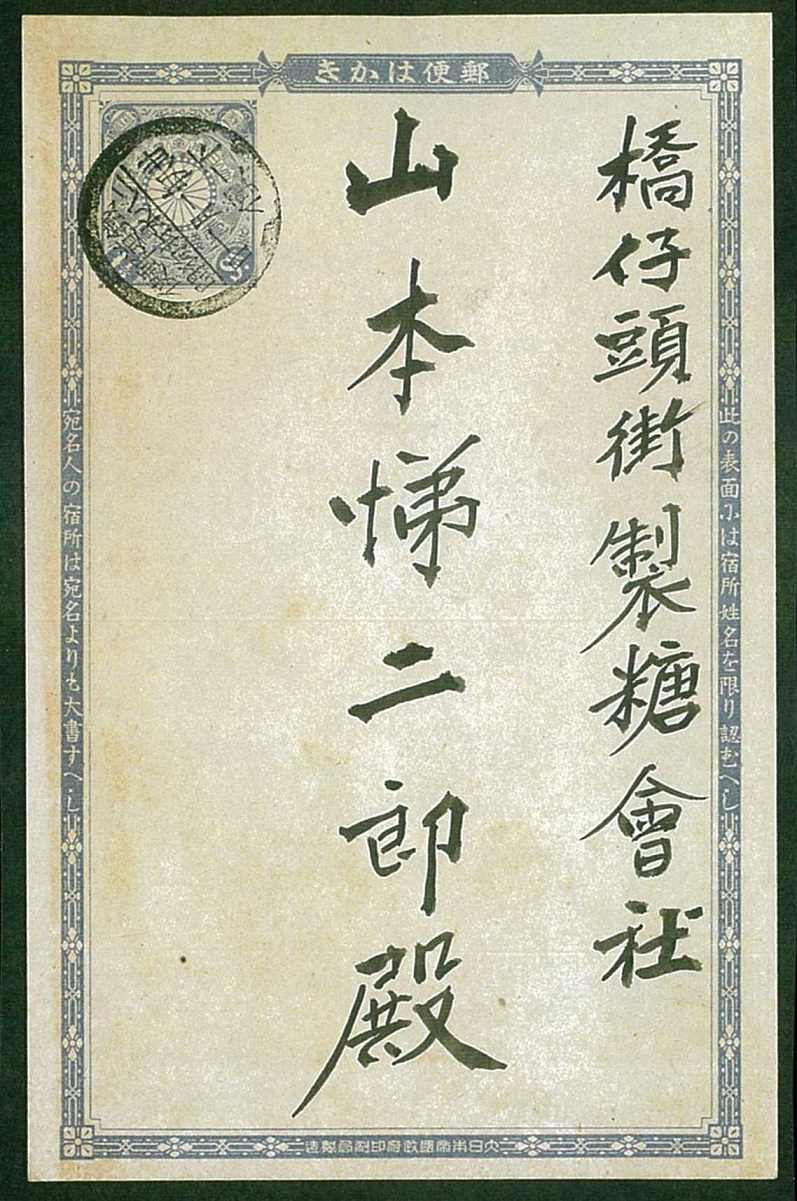 郵便はかき
此の表面には宿所姓名を限り認むへし
橋仔頭街製糖會社
山本悌二郎殿
宛名人の宿所は宛名よりも大書すへし
大日本帝國政府印刷局製造